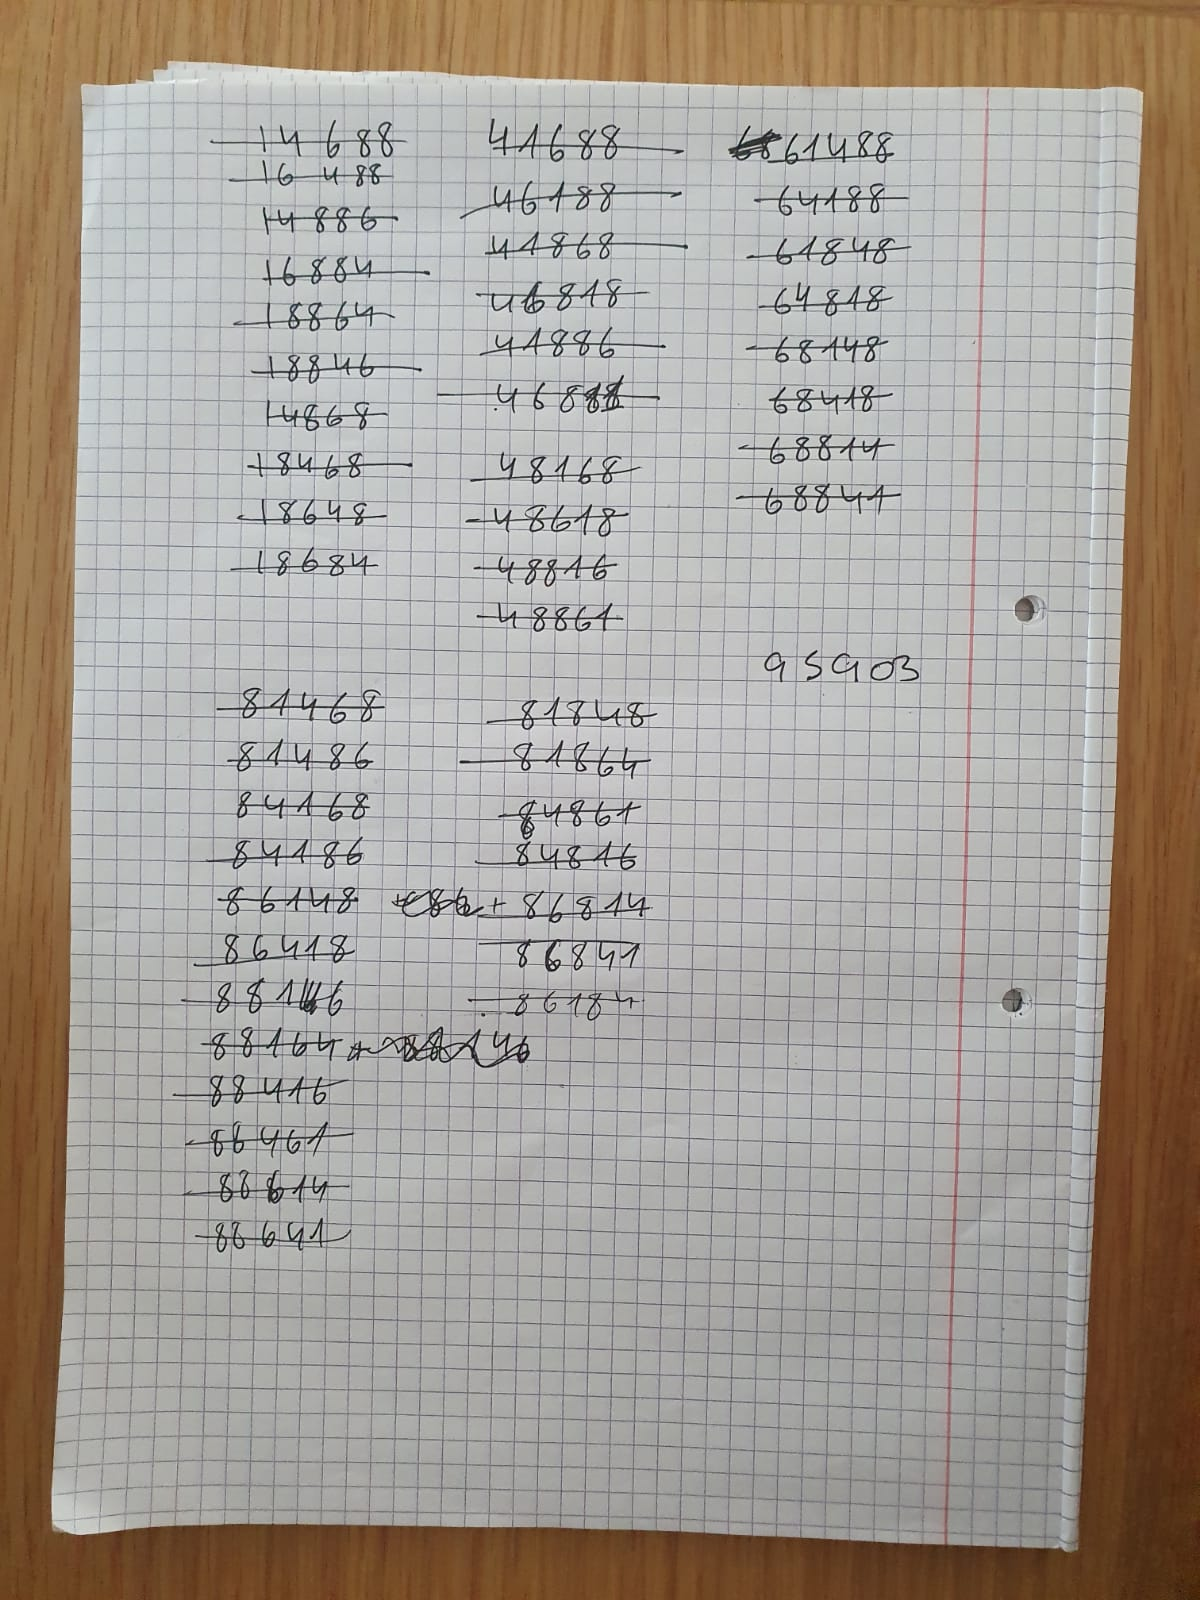 14688
16488
14886
16884
18864
18846
14868
18468
18648
18684
41688
46188
41868
46818
41886
46881
48168
48618
48816
48861
61488
64188
61848
64818
68148
68418
68814
68841
95903
81468
81486
84168
84186
86148
86418
88146
88164
88416
88461
88614
88641
81848
81864
84861
84816
86814
86841
86184